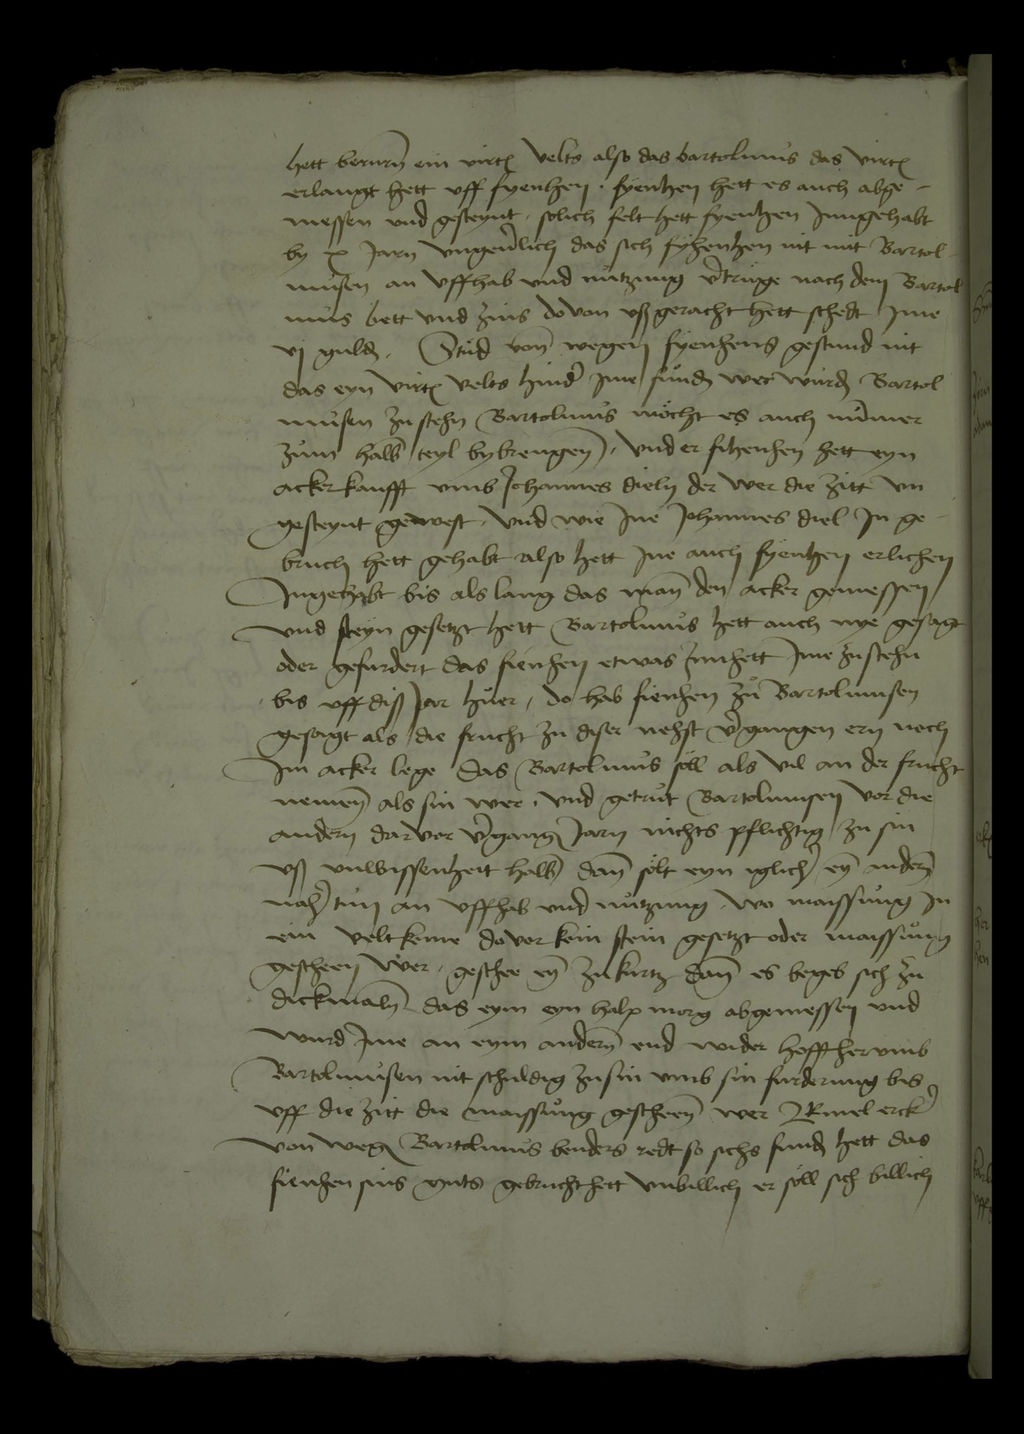 hett berurn̄ ein virt velts also das bartolmus das virt
erlangt hett uff fyenhen . fyenhen hett es auch abge-
messen und gesteynt . solich felt hett fyenhen Inngehabt
by x Jarn ungeverlich das sich fyhenhen nit mit Bartol-
musen an uffhab und nutzung vertruge nach dem Bartol
mus bett und zins do von ußgeracht hett schedt Ime
vj guld . von wegen fyenhens gestund nit
das eyn virt velts hinder Ime fund wer wurd Bartol
musen zu stehn Bartolmus mocht es auch nūmer
zum halb teyl bybrengen . und er fihenhen hett eyn
acker kaufft umb Johannes dieln der wer die zitt un
gesteynt gewest . und wie Ine Johannes diel In ge-
bruch hett gehabt also hett Ine auch fyenhen erlichen
Ingehabt bis als lang das man̄ den acker gemessen
und steyn gesetzt hett Bartolmus hett auch nye gesagt
oder gefurdert das fienhen etwas Innhett Ime zustehn
bis uff diß Jar huer , do hab fienhen zu Bartolmusen
gesagt als die frucht zu diser nehst vergangen ern noch
Im acker lege das Bartolmus soll als vil an der frucht
nemen̄ als sin wer . und getrut Bartolmusen vor die
andern dar vor vergang Jarn nichts pflichtig zu sin
uß unwissenheit halb dan̄ solt eyn iglicher ey̅ andern̄
noher tun an uffhab und nutzung . wo maissung In
ein velt keme do vor kein stein gesetzt oder maissung
gescheen wer . geschee ey̅ zu kurtz dan̄ es begeb sich zu
dickmaln das eym eyn halp morg abgemessen und
wurd Ime an eym andern̄ end wider hofft herumb
Bartolmusen nit schuldig zu sin umb sin furderung bis
uff die zitt die maissung gescheen̄ wer Emel erck
von weg Bartolmus benders redt so sichs fund hett das
fienhen sins guts gebrucht hett unbillich er soll sich billich